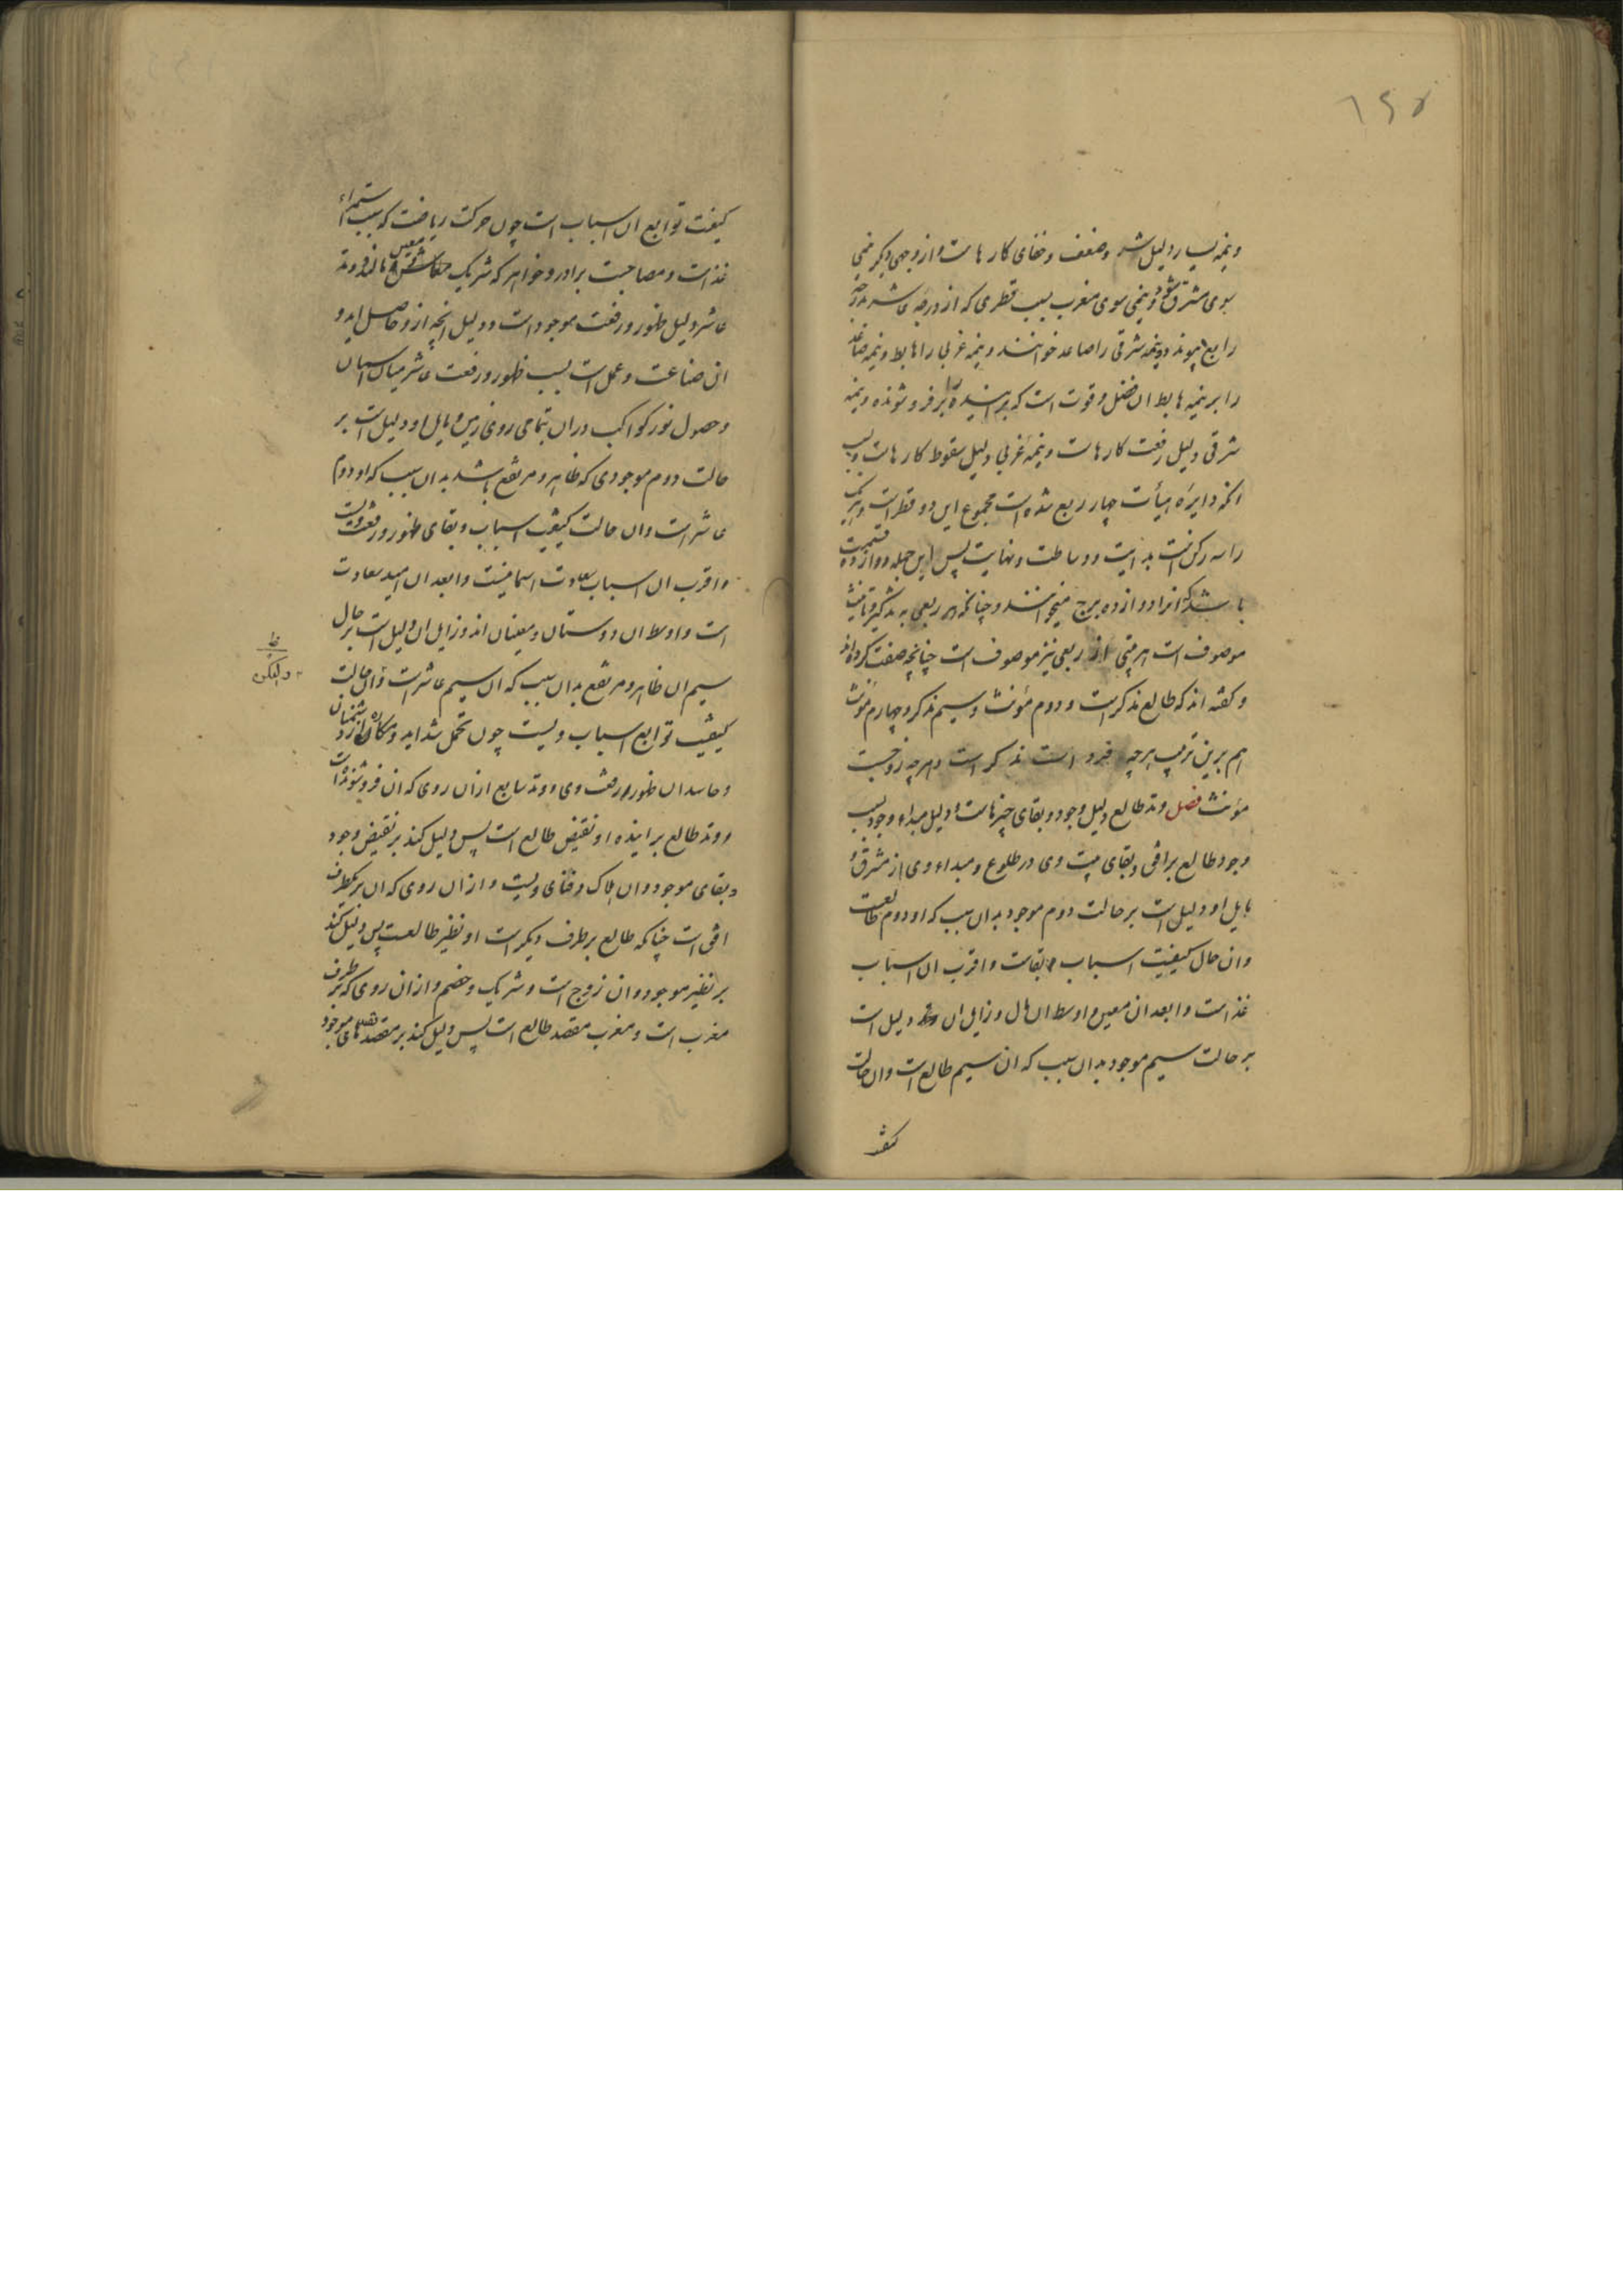 ۱۶۵
ونیمه یسار دلیل شر وضعف وخفای کارهاست واز وجهی دیکر نیمی
سوی مشرق شود ونیمی سوی مغرب بسبب قطری که از درجه عاشر بدرجه
رابع پیوندد ونیمه شرقی را صاعد خوانند ونیمه غربی را هابط ونیمه صاعد
را بر نیمه هابط ان فضل وقوت است که براینده را بر فرو شونده ونیمه
شرقی دلیل رفعت کارهاست ونیمه غربی دلیل سقوط کارهاست وبسبب
انکه دایره هیأت چهار ربع شده است مجموع این دو قطر است وهریک
را سه رکن است بدایت ووساطت ونهایت پس این جمله دوازده قسمت
باشد که انرا دوازده برج میخوانند وچنانکه هر ربعی به تذکیر وتانیث
موصوف است هر بیتی از ربعی نیز موصوف است چنانچه صفت کرده اند
وکفته اند که طالع مذکر است ودوم مؤنث وسیم مذکر وچهارم مؤنث
هم برین ترتیب هرچه فرد است مذکر است وهرچه زوجست
مؤنث فصل وتد طالع دلیل وجود وبقای چیزهاست ودلیل مبداء وجود بسبب
وجود طالع برافق وبقای بیت وی در طلوع ومبداء وی از مشرق و
مایل او دلیل است بر حالت دوم موجود بدان سبب که او دوم طالعست
وان حال کیفیت اسباب بقاست واقرب ان اسباب
غذاست وابعد ان معین واوسط ان مال وزایل ان دلیل است
بر حالت سیم موجود بدان سبب که ان سیم طالع است وان حالت
کیفیت توابع ان اسباب است چون حرکت ریاضت که سبب استمراء
غذاست ومصاحبت برادر وخواهر که شریک معین مال اند ووتد
عاشر دلیل ظهور ورفعت موجود است ودلیل انچه ازو حاصل اید و
ان صناعت وعمل است بسبب ظهور ورفعت عاشر میان اسمان
وحصول نور کواکب دران بتمامی روی زمین ومایل او دلیل است بر
حالت دوم موجودی که ظاهر ومرتفع باشد بدان سبب که او دوم
عاشر است وان حالت کیفیت اسباب وبقای ظهور ورفعت ویست
واقرب ان اسباب سعادت اسمانیست وابعد ان امید سعادت
است واوسط ان دوستان ومعینان اند وزایل ان دلیل است بر حال
سیم ان ظاهر ومرتفع بدان سبب که ان سیم عاشر است وان حالت
کیفیت توابع اسباب ویست چون تحمل شداید ومکاره از دشمنان
وحاسدان ظهور ورفعت وی ووتد سابع ازان روی که ان فروشونده است
ووتد طالع براینده او نقیض طالع است پس دلیل کند بر نقیض وجود
وبقای موجود وان هلاک وفنای ویست وازان روی که ان بر یکطرف
افق است چنانکه طالع بر طرف دیکر است او نظیر طالعست پس دلیل کند
بر نظیر موجود وان زوج است وشریک وخصم وازان روی که بر طرف
مغرب است ومغرب مقصد طالع است پس دلیل کند بر مقصدهای موجود